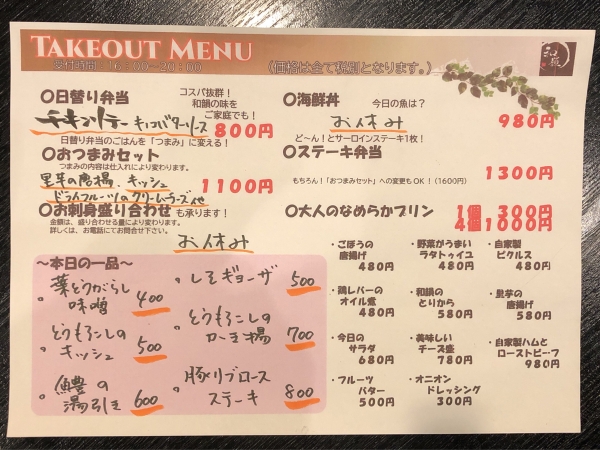 TAKEOUT MENU
受付時間:16:00~20:00
(価格は全て税別となります。)
和韻
〇日替り弁当
コスパ抜群!
和韻の味を
ご家庭でも!
チキンソテー キノコバターソース
800円
日替り弁当のごはんを「つまみ」に変える!
〇おつまみセット
つまみの内容は仕入れにより変わります。
里芋の唐揚、キッシュ
ドライフルーツのクリームチーズ 他
1100円
〇お刺身盛り合わせ も承ります!
金額は、盛り合わせる量により変わります。
詳しくは、お電話にてお問合せ下さい。
お休み
〇海鮮丼
今日の魚は?
お休み
980円
ど~ん!とサーロインステーキ1枚!
〇ステーキ弁当
1300円
もちろん!「おつまみセット」への変更もOK!(1600円)
〇大人のなめらかプリン
1個 300円
4個1000円
~本日の一品~
・葉とうがらし
味噌
400
・とうもろこしの
キッシュ
500
・鱧の
湯引き
600
・しそギョーザ
500
・とうもろこしの
かき揚
700
・豚リブロース
ステーキ
800
・ごぼうの
唐揚げ
480円
・野菜がうまい
ラタトゥイユ
480円
・自家製
ピクルス
480円
・鶏レバーの
オイル煮
480円
・和韻の
とりから
580円
・里芋の
唐揚げ
580円
・今日の
サラダ
680円
・美味しい
チーズ盛
780円
・自家製ハムと
ローストビーフ
980円
・フルーツ
バター
500円
・オニオン
ドレッシング
300円